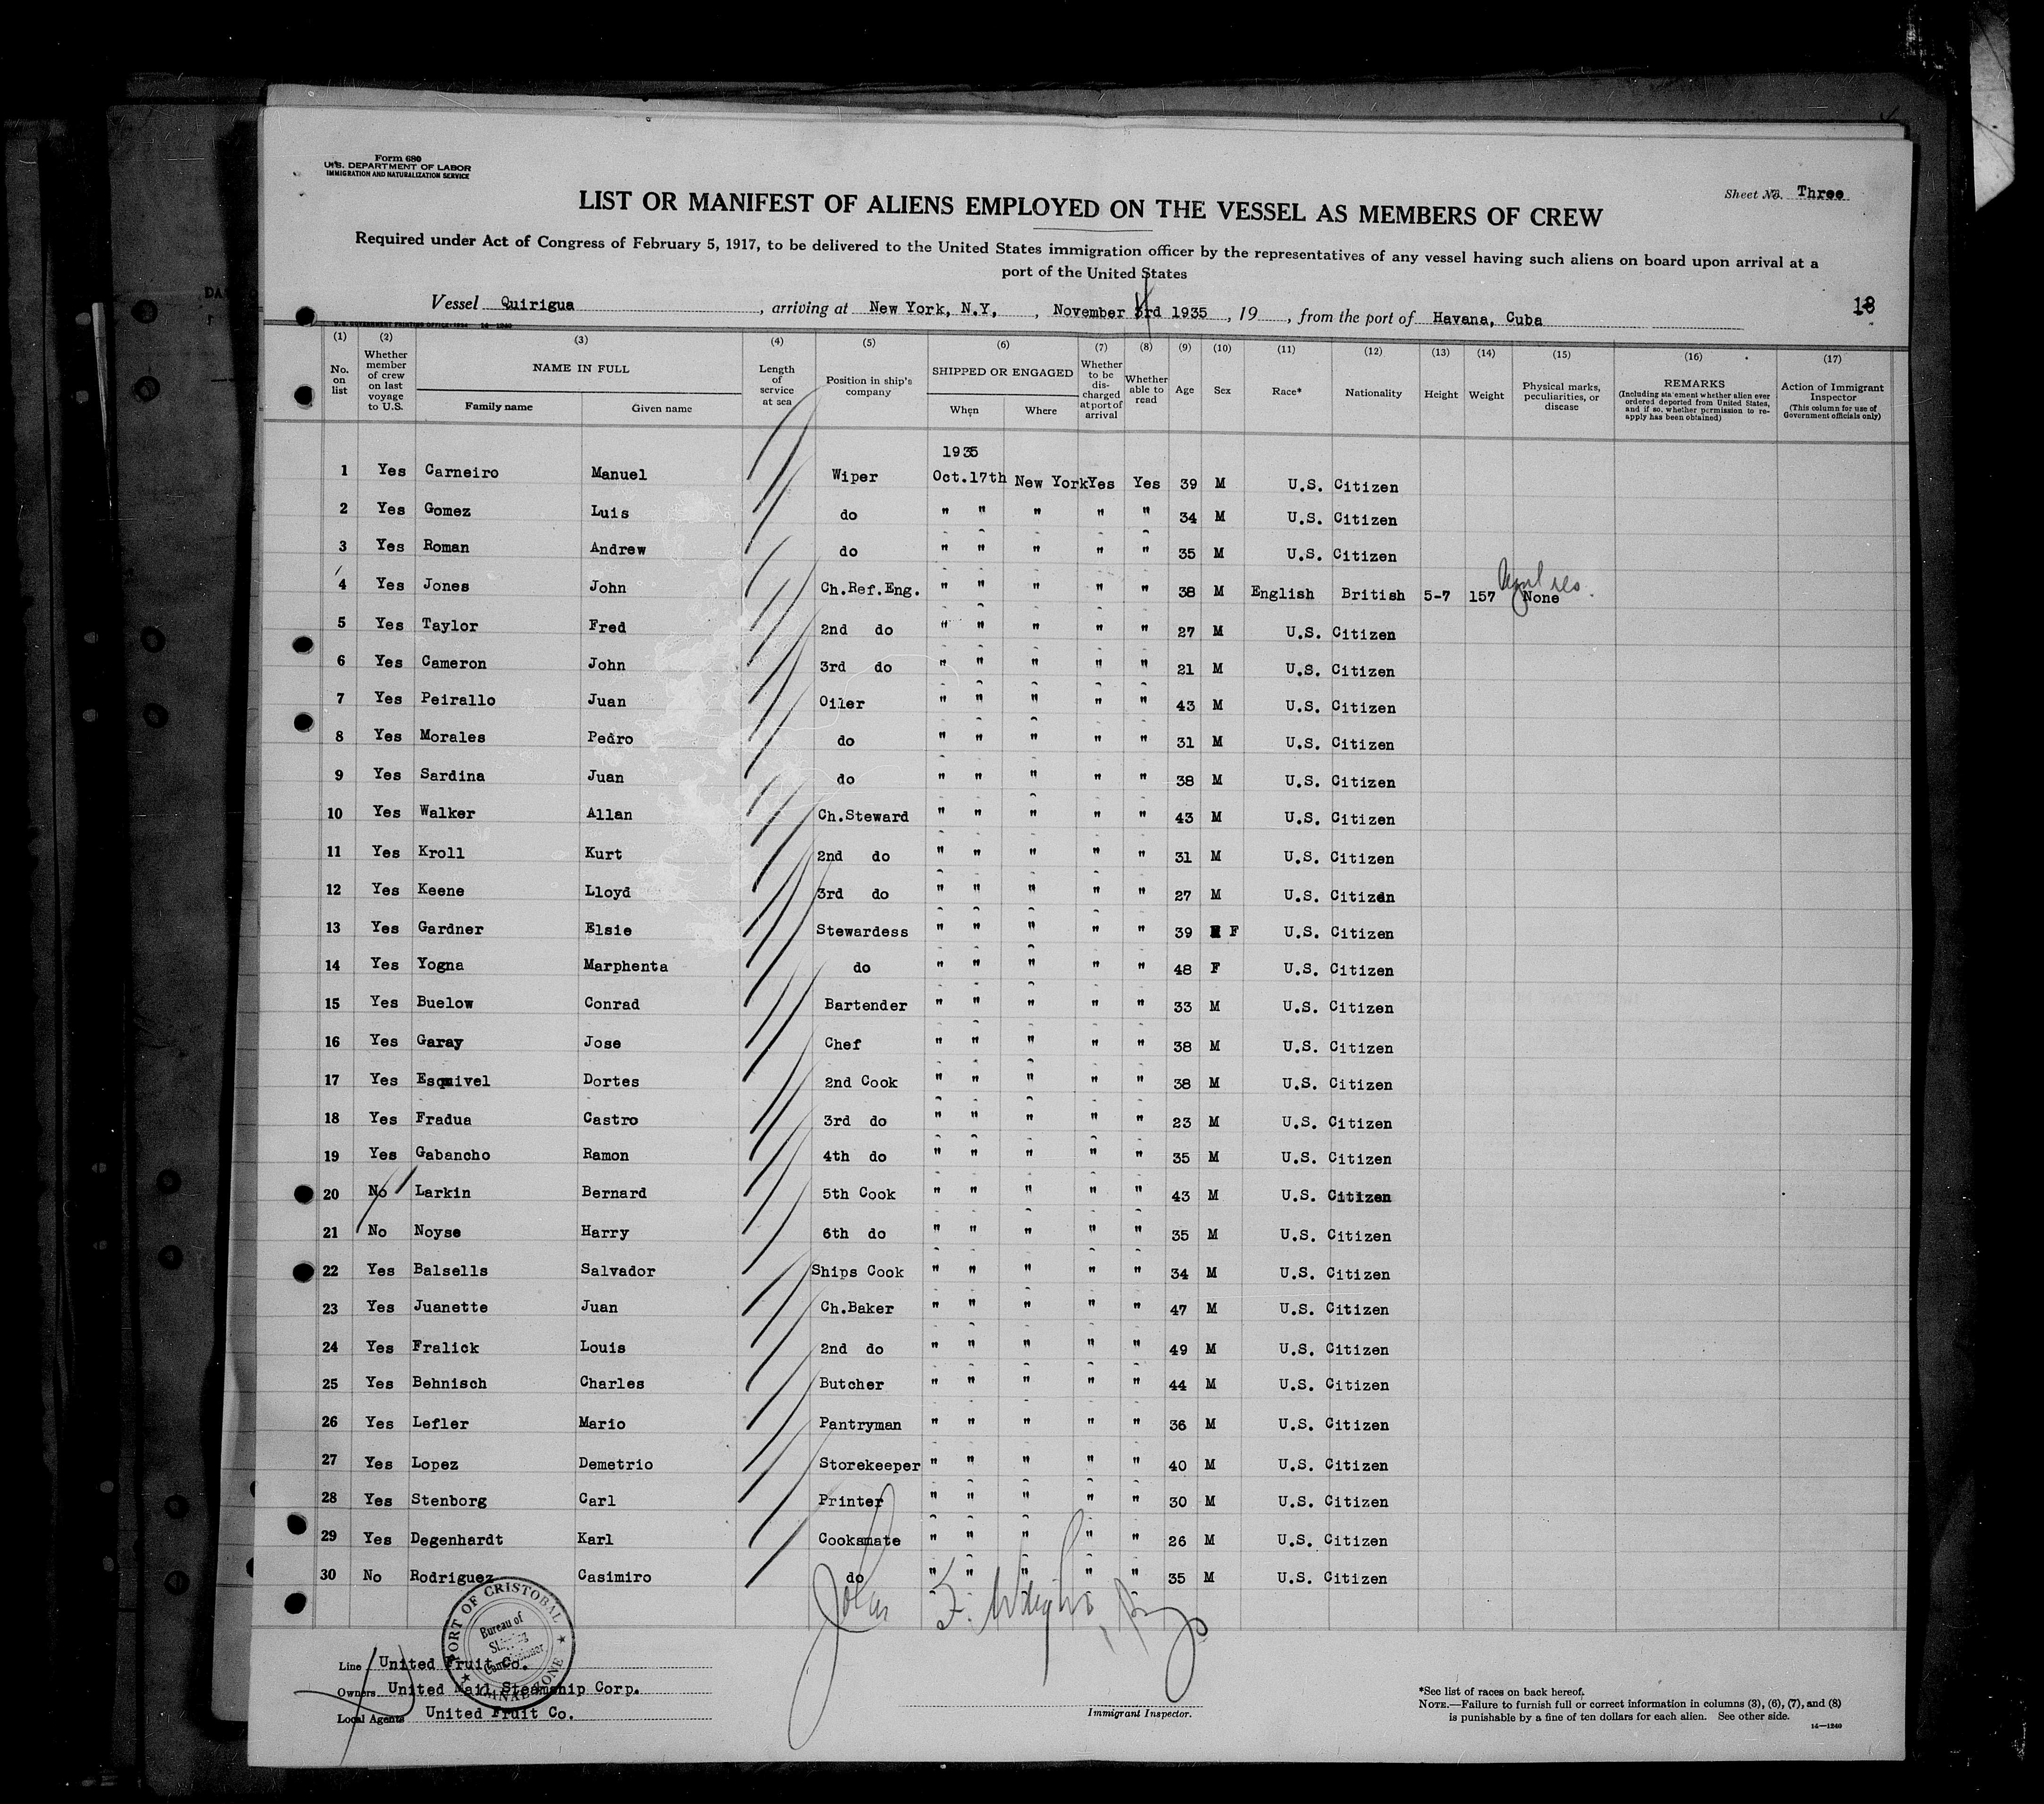 Form 680
U.S. DEPARTMENT OF LABOR
IMMIGRATION AND NATURALIZATION SERVICE
Sheet No. Three
LIST OR MANIFEST OF ALIENS EMPLOYED ON THE VESSEL AS MEMBERS OF CREW
Required under Act of Congress of February 5, 1917, to be delivered to the United States immigration officer by the representatives of any vessel having such aliens on board upon arrival at a
port of the United States
Vessel Quirigua, arriving at New York, N.Y., November 3rd 1935, 19, from the port of Havana, Cuba
U.S. GOVERNMENT PRINTING OFFICE: 1934 14—1240
(1) (2) (3) (4) (5) (6) (7) (8) (9) (10) (11) (12) (13) (14) (15) (16) (17)
No. on list
Whether member of crew on last voyage to U.S.
NAME IN FULL
Family name
Given name
Length of service at sea
Position in ship's company
SHIPPED OR ENGAGED
When
Where
Whether to be discharged at port of arrival
Whether able to read
Age
Sex
Race*
Nationality
Height
Weight
Physical marks, peculiarities, or disease
REMARKS
(Including statement whether alien ever ordered deported from United States, and if so, whether permission to reapply has been obtained)
Action of Immigrant Inspector
(This column for use of Government officials only)
1935
1 Yes Carneiro Manuel Wiper Oct.17th New York Yes Yes 39 M U.S. Citizen
2 Yes Gomez Luis do " " " " " 34 M U.S. Citizen
3 Yes Roman Andrew do " " " " " 35 M U.S. Citizen
4 Yes Jones John Ch.Ref.Eng. " " " " " 38 M English British 5-7 157 None
5 Yes Taylor Fred 2nd do " " " " " 27 M U.S. Citizen
6 Yes Cameron John 3rd do " " " " " 21 M U.S. Citizen
7 Yes Peirallo Juan Oiler " " " " " 43 M U.S. Citizen
8 Yes Morales Pedro do " " " " " 31 M U.S. Citizen
9 Yes Sardina Juan do " " " " " 38 M U.S. Citizen
10 Yes Walker Allan Ch.Steward " " " " " 43 M U.S. Citizen
11 Yes Kroll Kurt 2nd do " " " " " 31 M U.S. Citizen
12 Yes Keene Lloyd 3rd do " " " " " 27 M U.S. Citizdn
13 Yes Gardner Elsie Stewardess " " " " " 39 F U.S. Citizen
14 Yes Yogna Marphenta do " " " " " 48 F U.S. Citizen
15 Yes Buelow Conrad Bartender " " " " " 33 M U.S. Citizen
16 Yes Garay Jose Chef " " " " " 38 M U.S. Citizen
17 Yes Esquivel Dortes 2nd Cook " " " " " 38 M U.S. Citizen
18 Yes Fradua Castro 3rd do " " " " " 23 M U.S. Citizen
19 Yes Gabancho Ramon 4th do " " " " " 35 M U.S. Citizen
20 No Larkin Bernard 5th Cook " " " " " 43 M U.S. Citizen
21 No Noyse Harry 6th do " " " " " 35 M U.S. Citizen
22 Yes Balsells Salvador Ships Cook " " " " " 34 M U.S. Citizen
23 Yes Juanette Juan Ch.Baker " " " " " 47 M U.S. Citizen
24 Yes Fralick Louis 2nd do " " " " " 49 M U.S. Citizen
25 Yes Behnisch Charles Butcher " " " " " 44 M U.S. Citizen
26 Yes Lefler Mario Pantryman " " " " " 36 M U.S. Citizen
27 Yes Lopez Demetrio Storekeeper " " " " " 40 M U.S. Citizen
28 Yes Stenborg Carl Printer " " " " " 30 M U.S. Citizen
29 Yes Degenhardt Karl Cooksmate " " " " " 26 M U.S. Citizen
30 No Rodriguez Casimiro do " " " " " 35 M U.S. Citizen
John F.
PORT OF CRISTOBAL
Bureau of
Shipping
Commissioner
CANAL ZONE
Line United Fruit Co.
Owners United Mail Steamship Corp.
Local Agents United Fruit Co.
Immigrant Inspector.
*See list of races on back hereof.
NOTE.—Failure to furnish full or correct information in columns (3), (6), (7), and (8)
is punishable by a fine of ten dollars for each alien. See other side.
14—1240